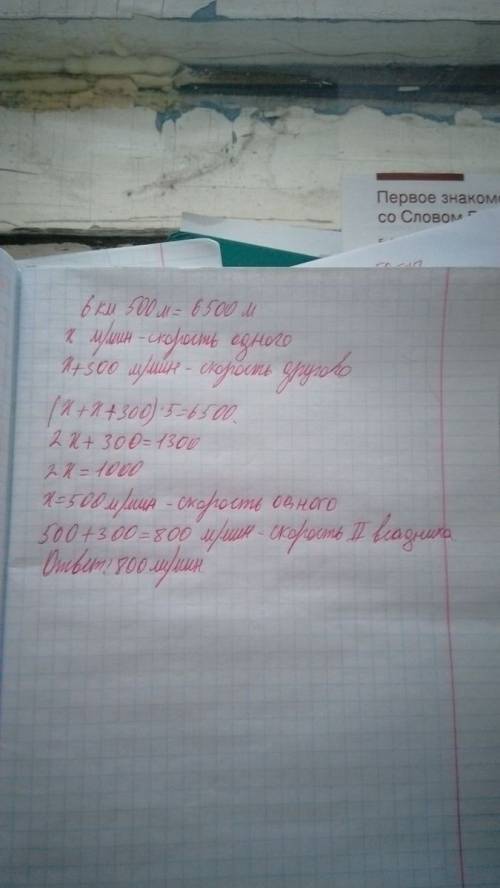 Первое знаком
со Словом
6 км 500 м = 6500 м
х м/мин - скорость одного
х+300 м/мин - скорость другово
(х + х + 300) · 5 = 6500.
2х + 300 = 1300
2х = 1000
х = 500 м/мин - скорость одного
500 + 300 = 800 м/мин - скорость II всадника
Ответ: 800 м/мин